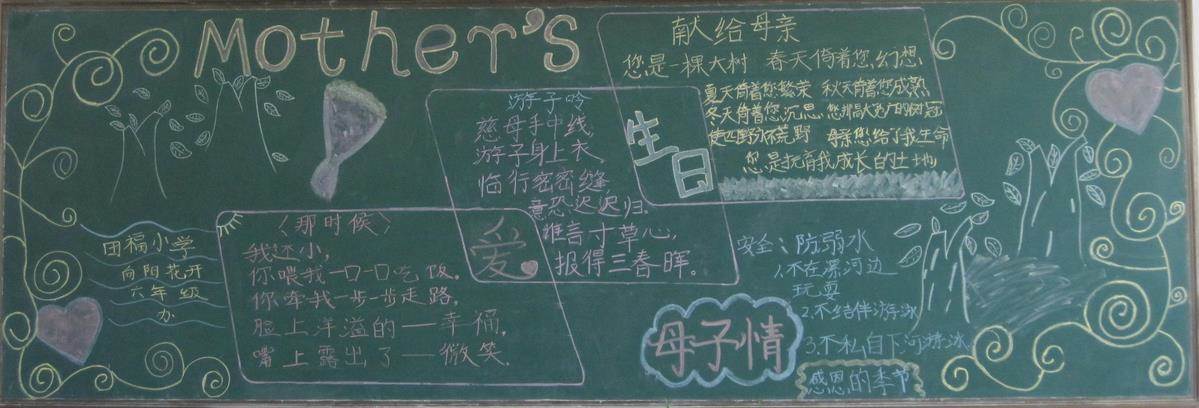 Mother's
献给母亲
您是一棵大树 春天倚着您幻想
夏天倚着您繁荣 秋天倚着您成熟
冬天倚着您沉思 您那高大宽广的树冠
使四野不荒野 母亲您给了我生命
您是抚育我成长的土地
生日
游子吟
慈母手中线,
游子身上衣,
临行密密缝,
意恐迟迟归.
谁言寸草心,
报得三春晖。
爱
田福小学
向阳花开
六年级
办
〈那时候〉
我还小,
你喂我一口一口吃饭。
你牵我一步一步走路,
脸上洋溢的——幸福,
嘴上露出了——微笑.
母子情
安全:防弱水
1.不在漯河边
玩耍
2.不结伴游泳
3.不私自下河游泳
感恩的季节